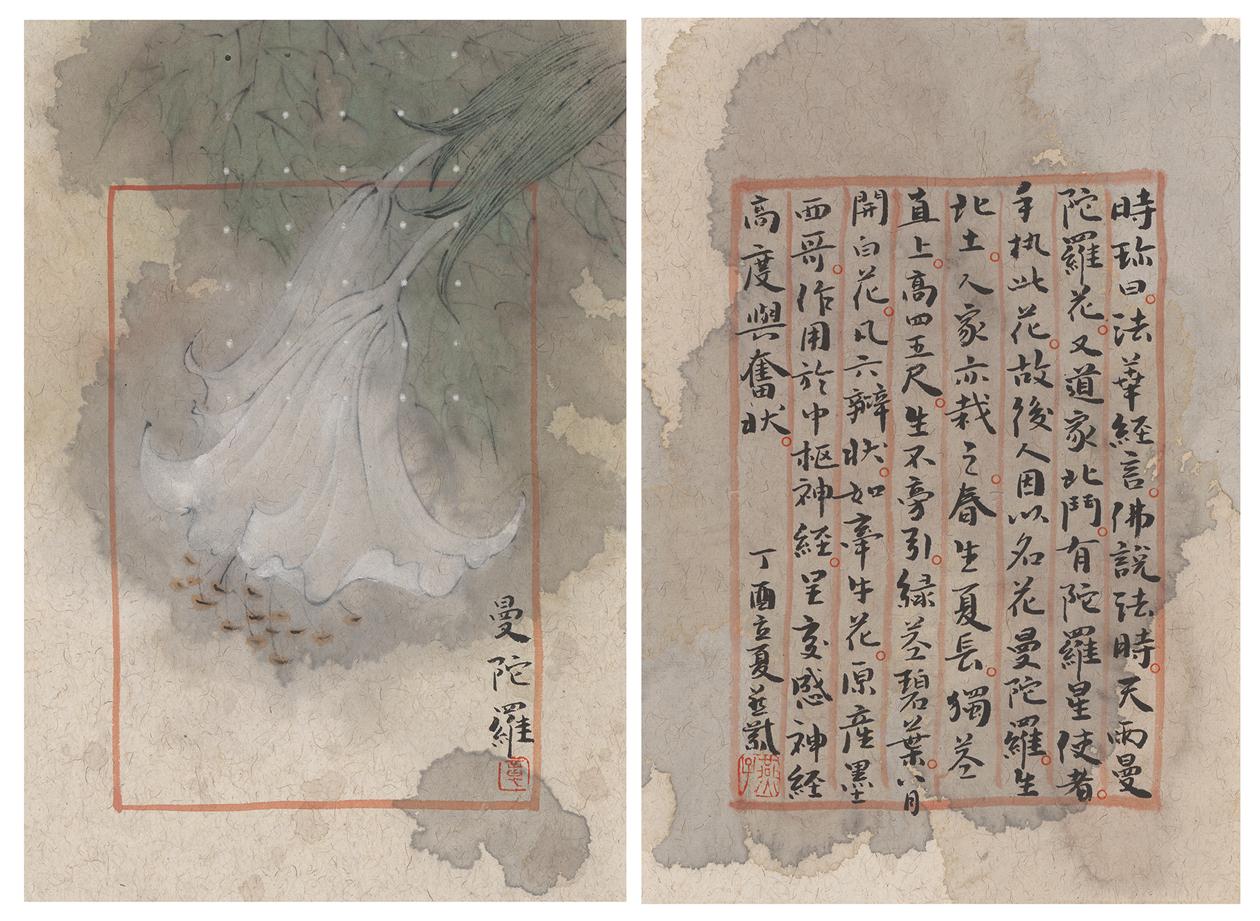 曼陀羅
時珍曰。法華経言。佛說法時。天雨曼
陀羅花。又道家北鬥。有陀羅星使者。
手执此花。故後人因以名花曼陀羅。生
北土。人家亦栽之。春生夏長。獨茎
直上。高四五尺。生不旁引。緑茎碧葉。八月
開白花。凡六瓣状。如牽牛花。原産墨
西哥。作用於中枢神経。呈交感神経
高度興奮状。
丁酉立夏